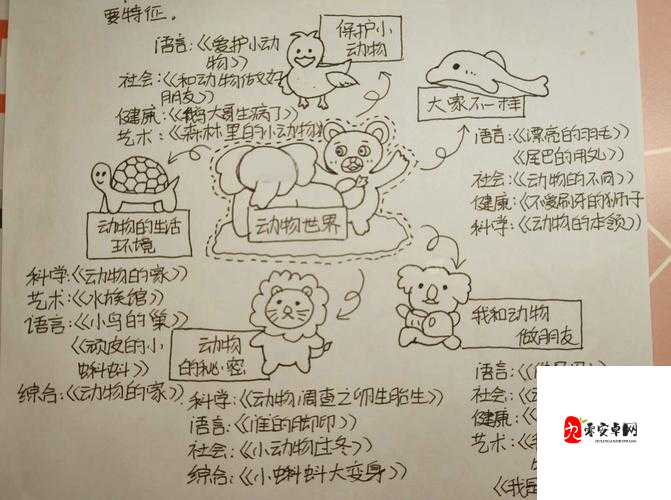 要特征。
语言:《爱护小动
物》
社会:《和动物做好
朋友》
健康:《鹅大哥生病了》
艺术:《森林里的小动物》
保护小
动物
大家不一样
语言:《漂亮的羽毛》
《尾巴的用处》
社会:《动物的不同》
健康:《不爱刷牙的狮子
科学:《动物的本领》
动物世界
动物的生活
环境
科学:《动物的家》
艺术:《水族馆》
语言:《小鸟的巢》
《顽皮的小
蝌蚪》
综合:《动物的家》
动物
的秘密
科学:《动物调查之卵生胎生》
语言:《谁的脚印》
社会:《小动物过冬》
综合:《小蝌蚪大变身》
我和动物
做朋友
语言:《
社会:《
健康:《
艺术:《
《我是
零安卓网